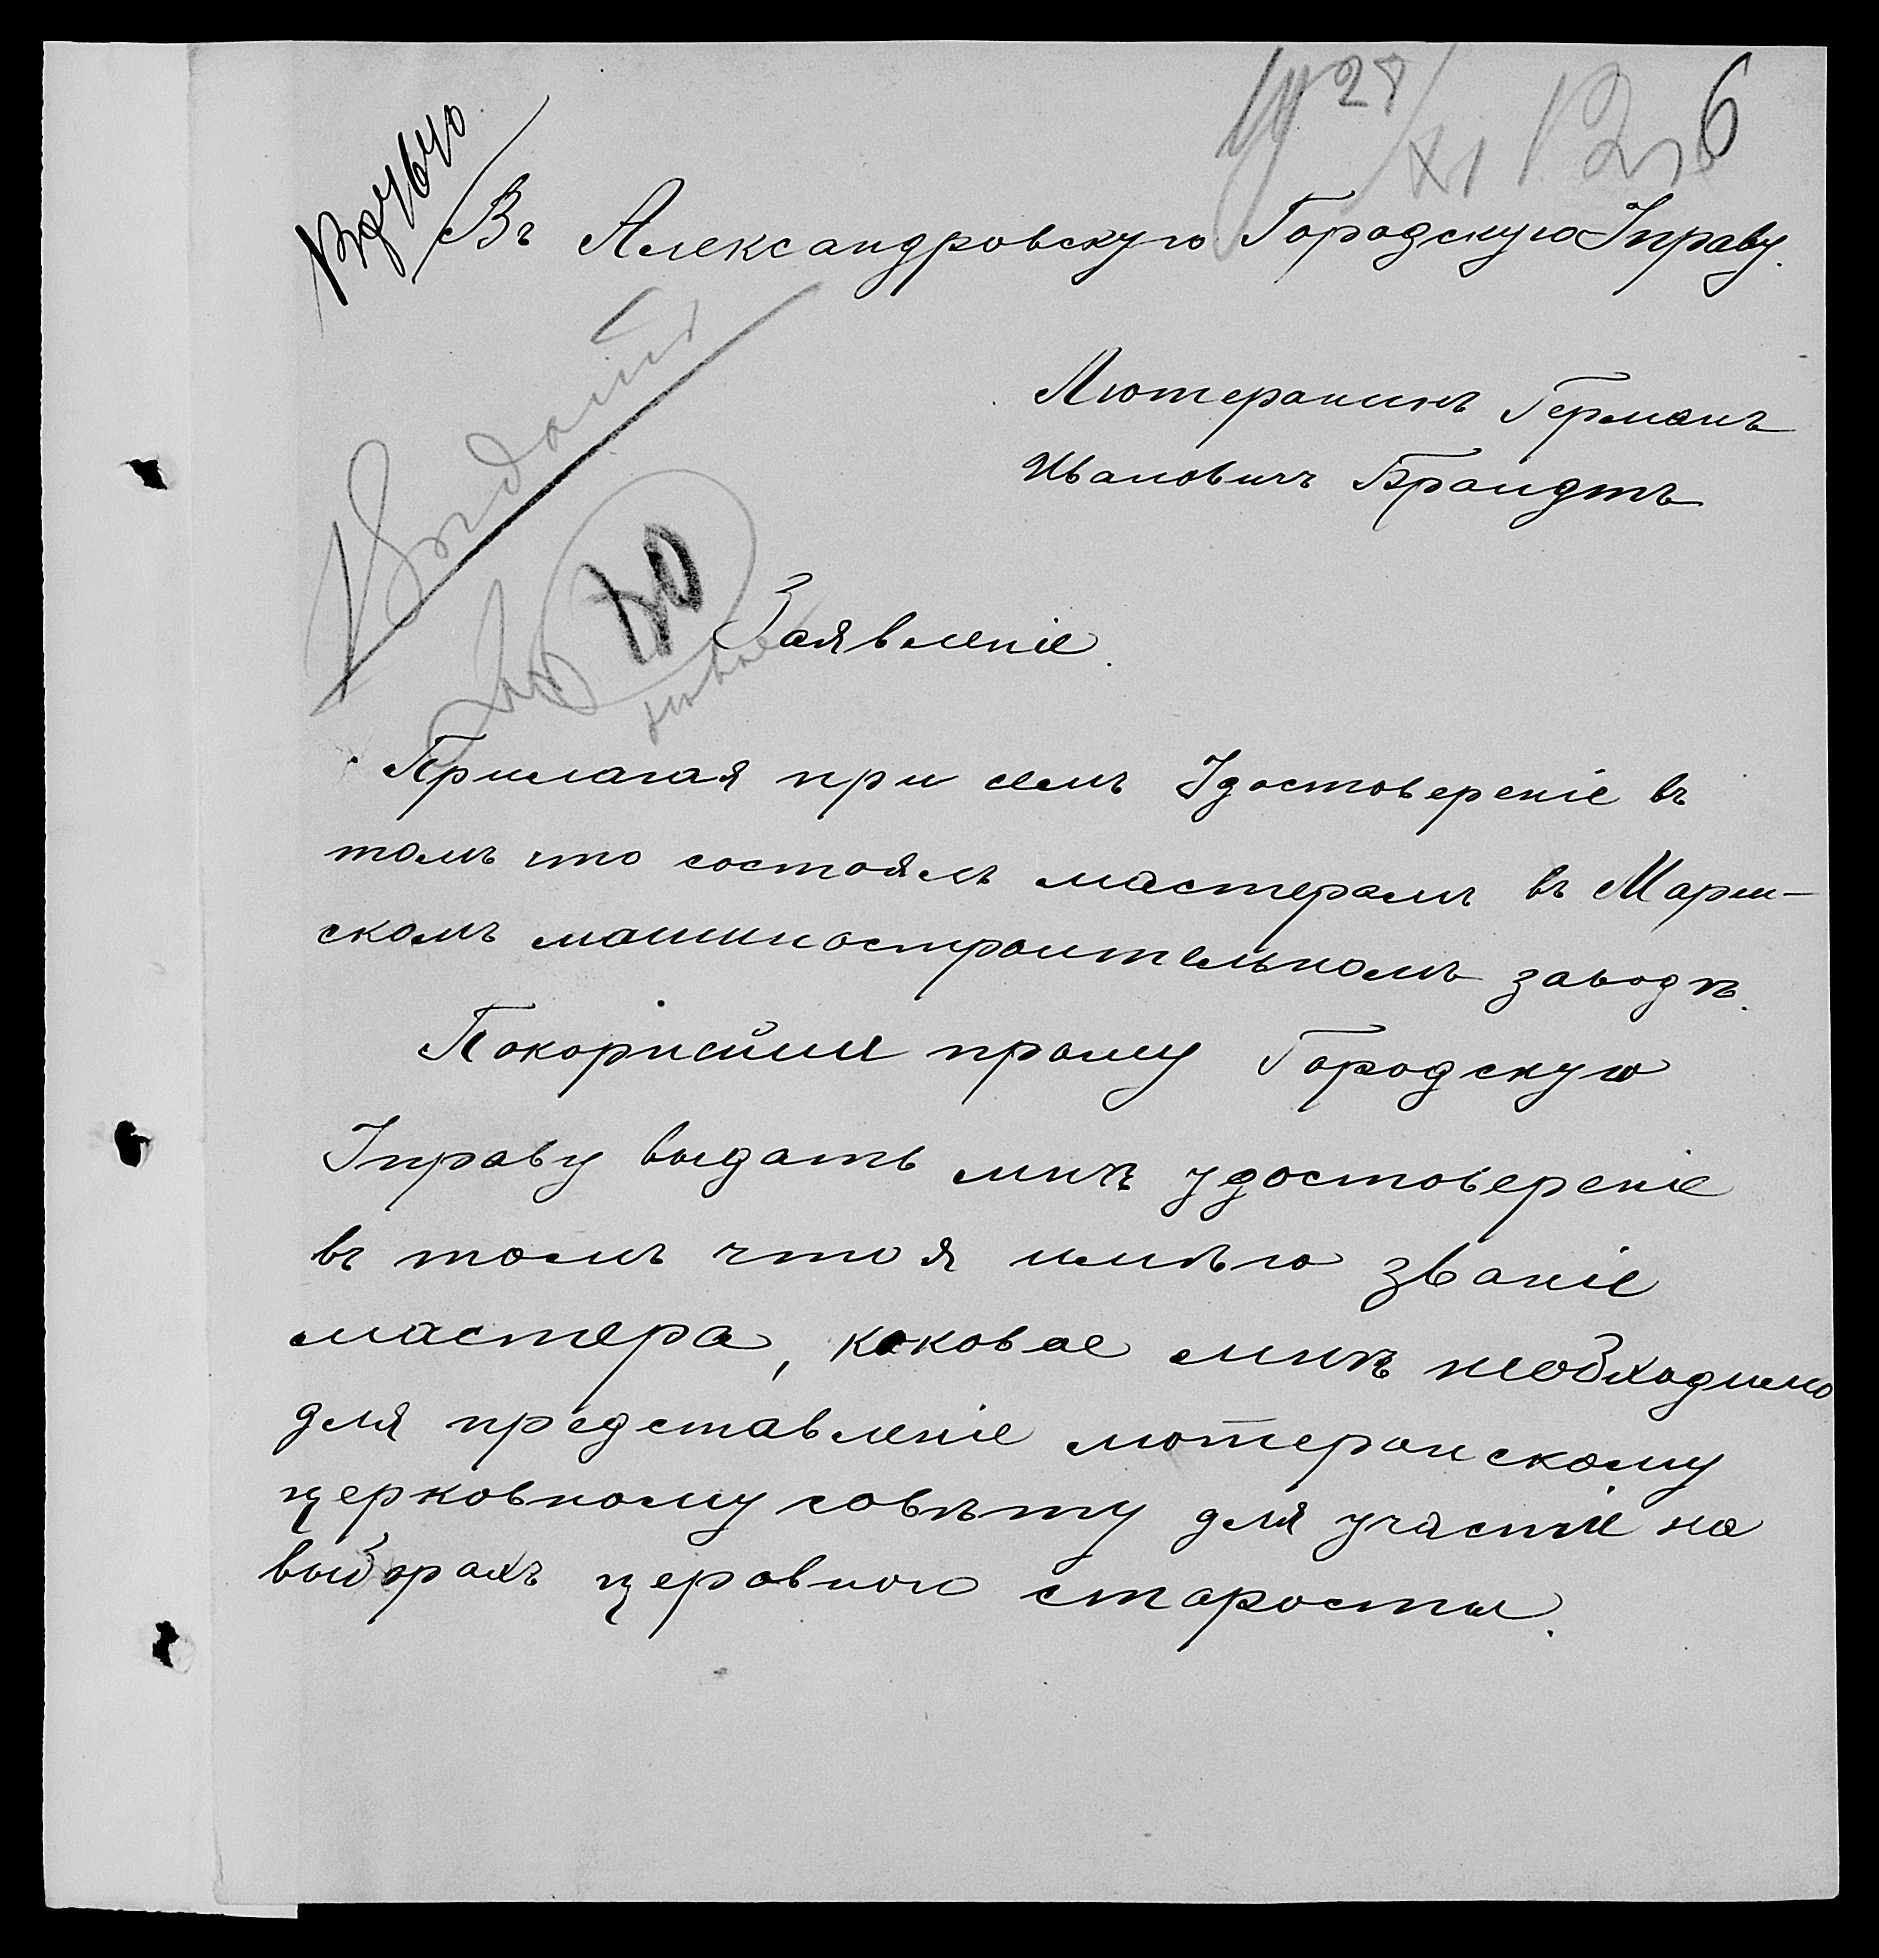 28/XI 12 6
Въ Александровскую Городскую Управу.
Лютеранинъ Германъ
Ивановичъ Брандтъ
Выдать
Заявленіе.
Прилагая при семъ Удостовереніе въ
томъ что состоялъ мастеромъ въ Марин-
скомъ машиностроительномъ заводѣ.
Покорнейше прошу Городскую
Управу выдать мнѣ удостовереніе
въ томъ что я имѣю званіе
мастера, каковое мнѣ необходимо
для представленіе лютеранскому
церковному совѣту для участіе на
выборахъ церовного старосты.